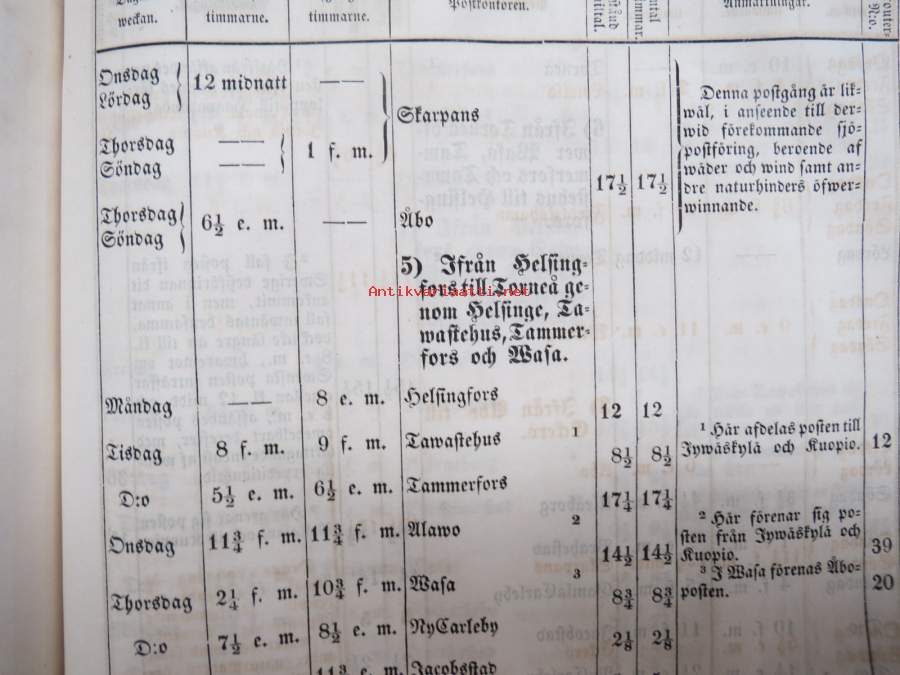 weckan. timmarne. timmarne. Postkontoren. Anmärkningar. N:o.
Onsdag 12 midnatt ——
Lördag
Skarpans
Thorsdag —— 1 f. m.
Söndag ——
17½ 17½
Denna postgång är lik-
wäl, i anseende till der-
wid förekommande sjö-
postföring, beroende af
wäder och wind samt an-
dre naturhinders öfwer-
winnande.
Thorsdag 6½ e. m. —— Åbo
Söndag
5) Ifrån Helsing-
fors till Torneå ge-
nom Helsinge, Ta-
wastehus, Tammer-
fors och Wasa.
Antikvariaatti.net
Måndag —— 8 e. m. Helsingfors
12 12
Tisdag 8 f. m. 9 f. m. Tawastehus 1
8½ 8½
¹ Här afdelas posten till
Jywäskylä och Kuopio. 12
D:o 5½ e. m. 6½ e. m. Tammerfors
17¼ 17¼
Onsdag 11¾ f. m. 11¾ f. m. Alawo 2
14½ 14½
² Här förenar sig po-
sten från Jywäskylä och
Kuopio. 39
Thorsdag 2¼ f. m. 10¾ f. m. Wasa 3
8¾ 8¾
³ I Wasa förenas Åbo-
posten. 20
D:o 7½ e. m. 8½ e. m. NyCarleby
2⅛ 2⅛
11¾ e. m. Jacobsstad